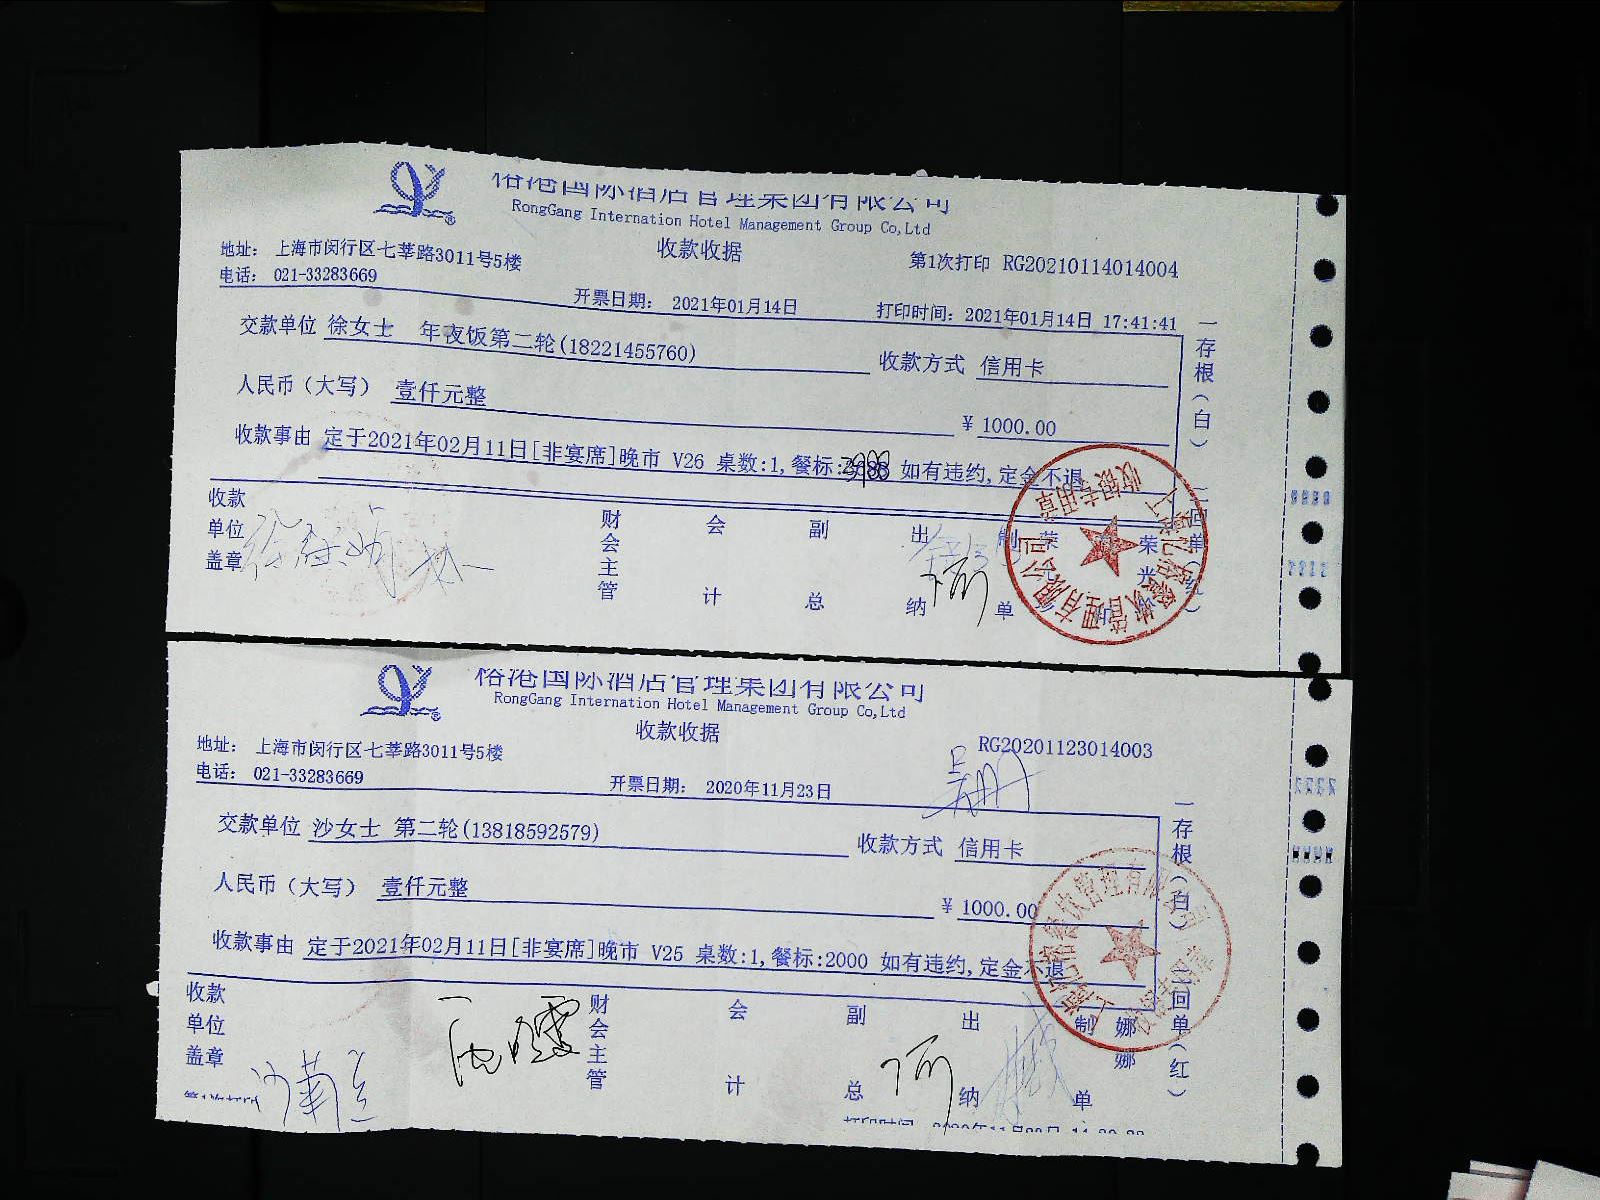 裕港国际酒店管理集团有限公司
RongGang Internation Hotel Management Group Co,Ltd
收款收据
地址: 上海市闵行区七莘路3011号5楼
第1次打印 RG20210114014004
电话: 021-33283669
开票日期: 2021年01月14日 打印时间: 2021年01月14日 17:41:41
交款单位 徐女士 年夜饭第二轮(18221455760) 收款方式 信用卡
人民币（大写） 壹仟元整 ¥ 1000.00
收款事由 定于2021年02月11日[非宴席]晚市 V26 桌数:1,餐标: 如有违约,定金不退
收款单位盖章 财会主管 会计 副总 出纳 制单
一存根（白） 二回单（红）
裕港国际酒店管理集团有限公司
RongGang Internation Hotel Management Group Co,Ltd
收款收据
地址: 上海市闵行区七莘路3011号5楼
RG20201123014003
电话: 021-33283669
开票日期: 2020年11月23日
交款单位 沙女士 第二轮(13818592579) 收款方式 信用卡
人民币（大写） 壹仟元整 ¥ 1000.00
收款事由 定于2021年02月11日[非宴席]晚市 V25 桌数:1,餐标:2000 如有违约,定金不退
收款单位盖章 财会主管 会计 副总 出纳 制单 娜娜
一存根（白） 二回单（红）
第1次打印